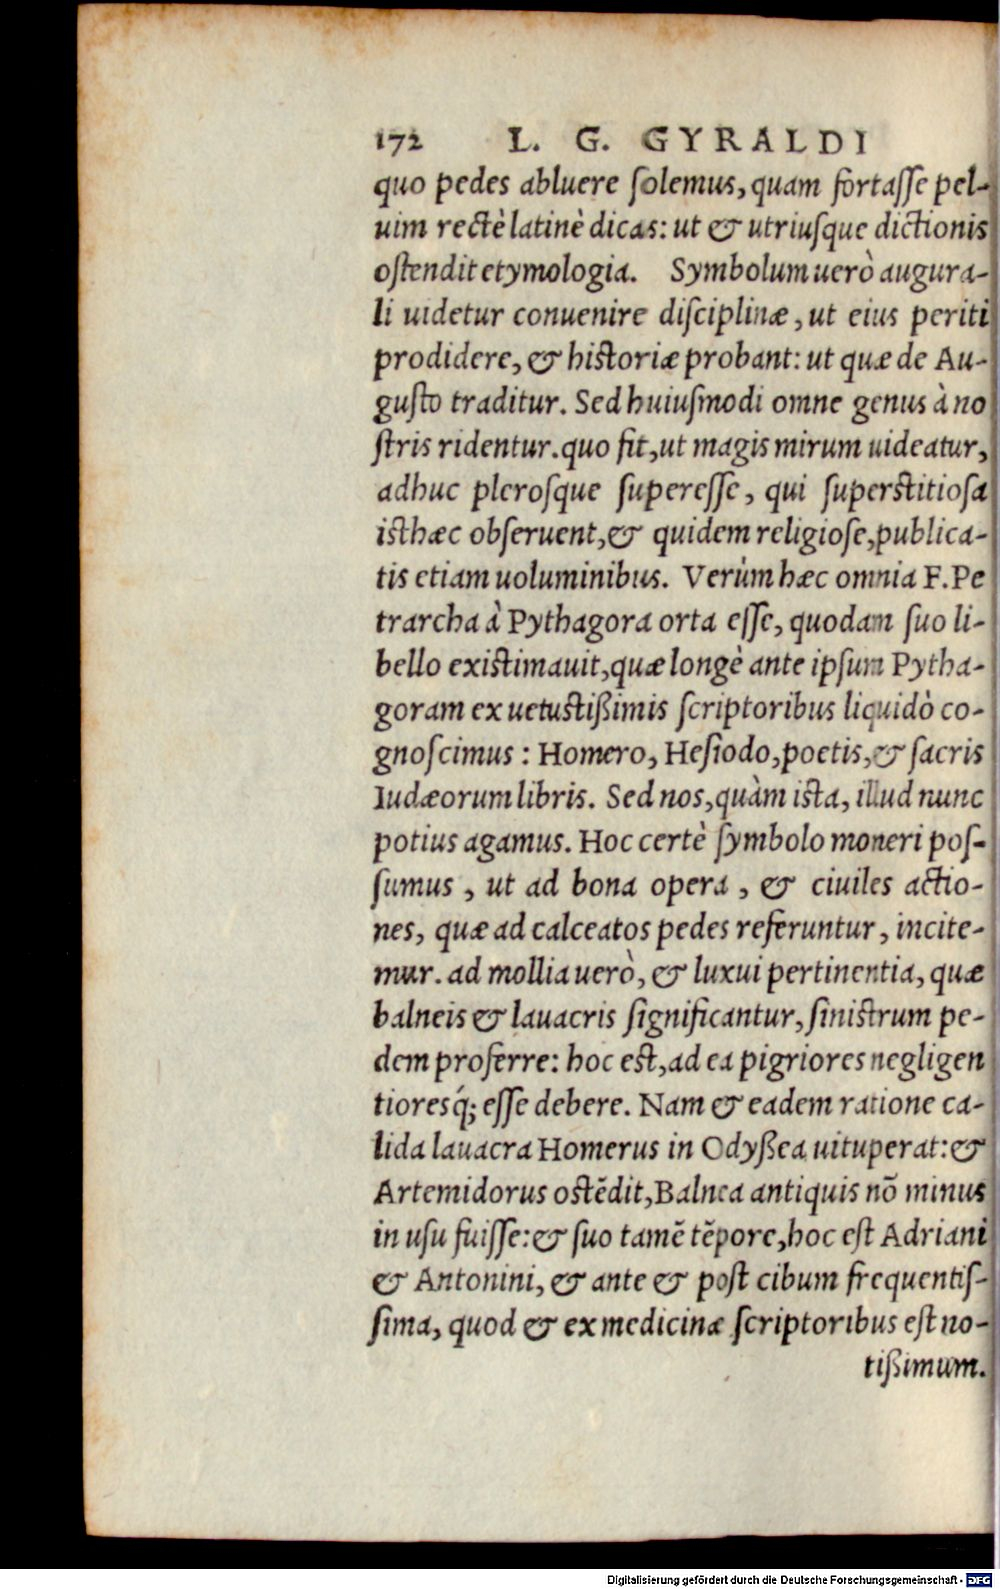 172 L. G. GYRALDI
quo pedes abluere ſolemus, quam fortaſſe pel-
uim rectè latinè dicas: ut & utriuſque dictionis
oſtendit etymologia. Symbolum uerò augura-
li uidetur conuenire diſciplinæ, ut eius periti
prodidere, & hiſtoriæ probant: ut quæ de Au-
guſto traditur. Sed huiuſmodi omne genus à no
ſtris ridentur. quo fit, ut magis mirum uideatur,
adhuc pleroſque ſupereſſe, qui ſuperſtitioſa
iſthæc obſeruent, & quidem religioſe, publica-
tis etiam uoluminibus. Verùm hæc omnia F. Pe
trarcha à Pythagora orta eſſe, quodam ſuo li-
bello exiſtimauit, quæ longè ante ipſum Pytha-
goram ex uetuſtißimis ſcriptoribus liquidò co-
gnoſcimus: Homero, Heſiodo, poetis, & ſacris
Iudæorum libris. Sed nos, quàm iſta, illud nunc
potius agamus. Hoc certè ſymbolo moneri poſ-
ſumus, ut ad bona opera, & ciuiles actio-
nes, quæ ad calceatos pedes referuntur, incite-
mur. ad mollia uerò, & luxui pertinentia, quæ
balneis & lauacris ſignificantur, ſiniſtrum pe-
dem proferre: hoc eſt, ad ea pigriores negligen
tioresq́; eſſe debere. Nam & eadem ratione ca-
lida lauacra Homerus in Odyßea uituperat: &
Artemidorus oſtẽdit, Balnea antiquis nõ minus
in uſu fuiſſe: & ſuo tamẽ tẽpore, hoc eſt Adriani
& Antonini, & ante & poſt cibum frequentiſ-
ſima, quod & ex medicinæ ſcriptoribus eſt no-
tißimum.
Digitalisierung gefördert durch die Deutsche Forschungsgemeinschaft - DFG